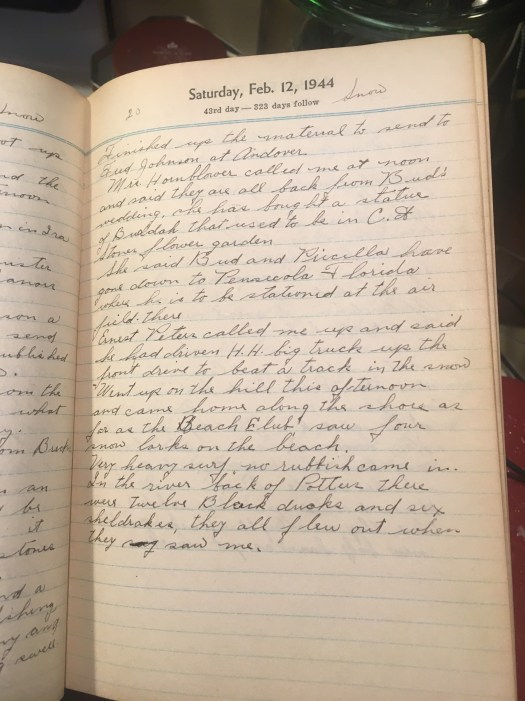 Snow
ot up
nd the
noon
n in Ira
uster
anon
son a
send
ublished
om the
what
y.
om Buck
an
be
it
stones
nd a
ishing
ny and
g swell
Saturday, Feb. 12, 1944
43rd day—323 days follow
20
Snow
Finished up the material to send to
Fred Johnson at Andover
Mrs Hornblower called me at noon
and said they are all back from Bud's
wedding. she has bought a statue
of that used to be in C. A
Stones flower garden
She said Bud and Pricilla have
gone down to Pensicola Florida
where he is to be stationed at the air
field there
Ernest Peters called me up and said
he had driven H.H. big truck up the
front drive to beat a track in the snow
Went up on the hill this afternoon
and came home along the shore as
far as the Beach Club saw four
snow larks on the beach.
Very heavy surf, no rubbish came in.
In the river back of Potters there
were twelve Black ducks and six
sheldrakes, they all flew out when
they saw me.